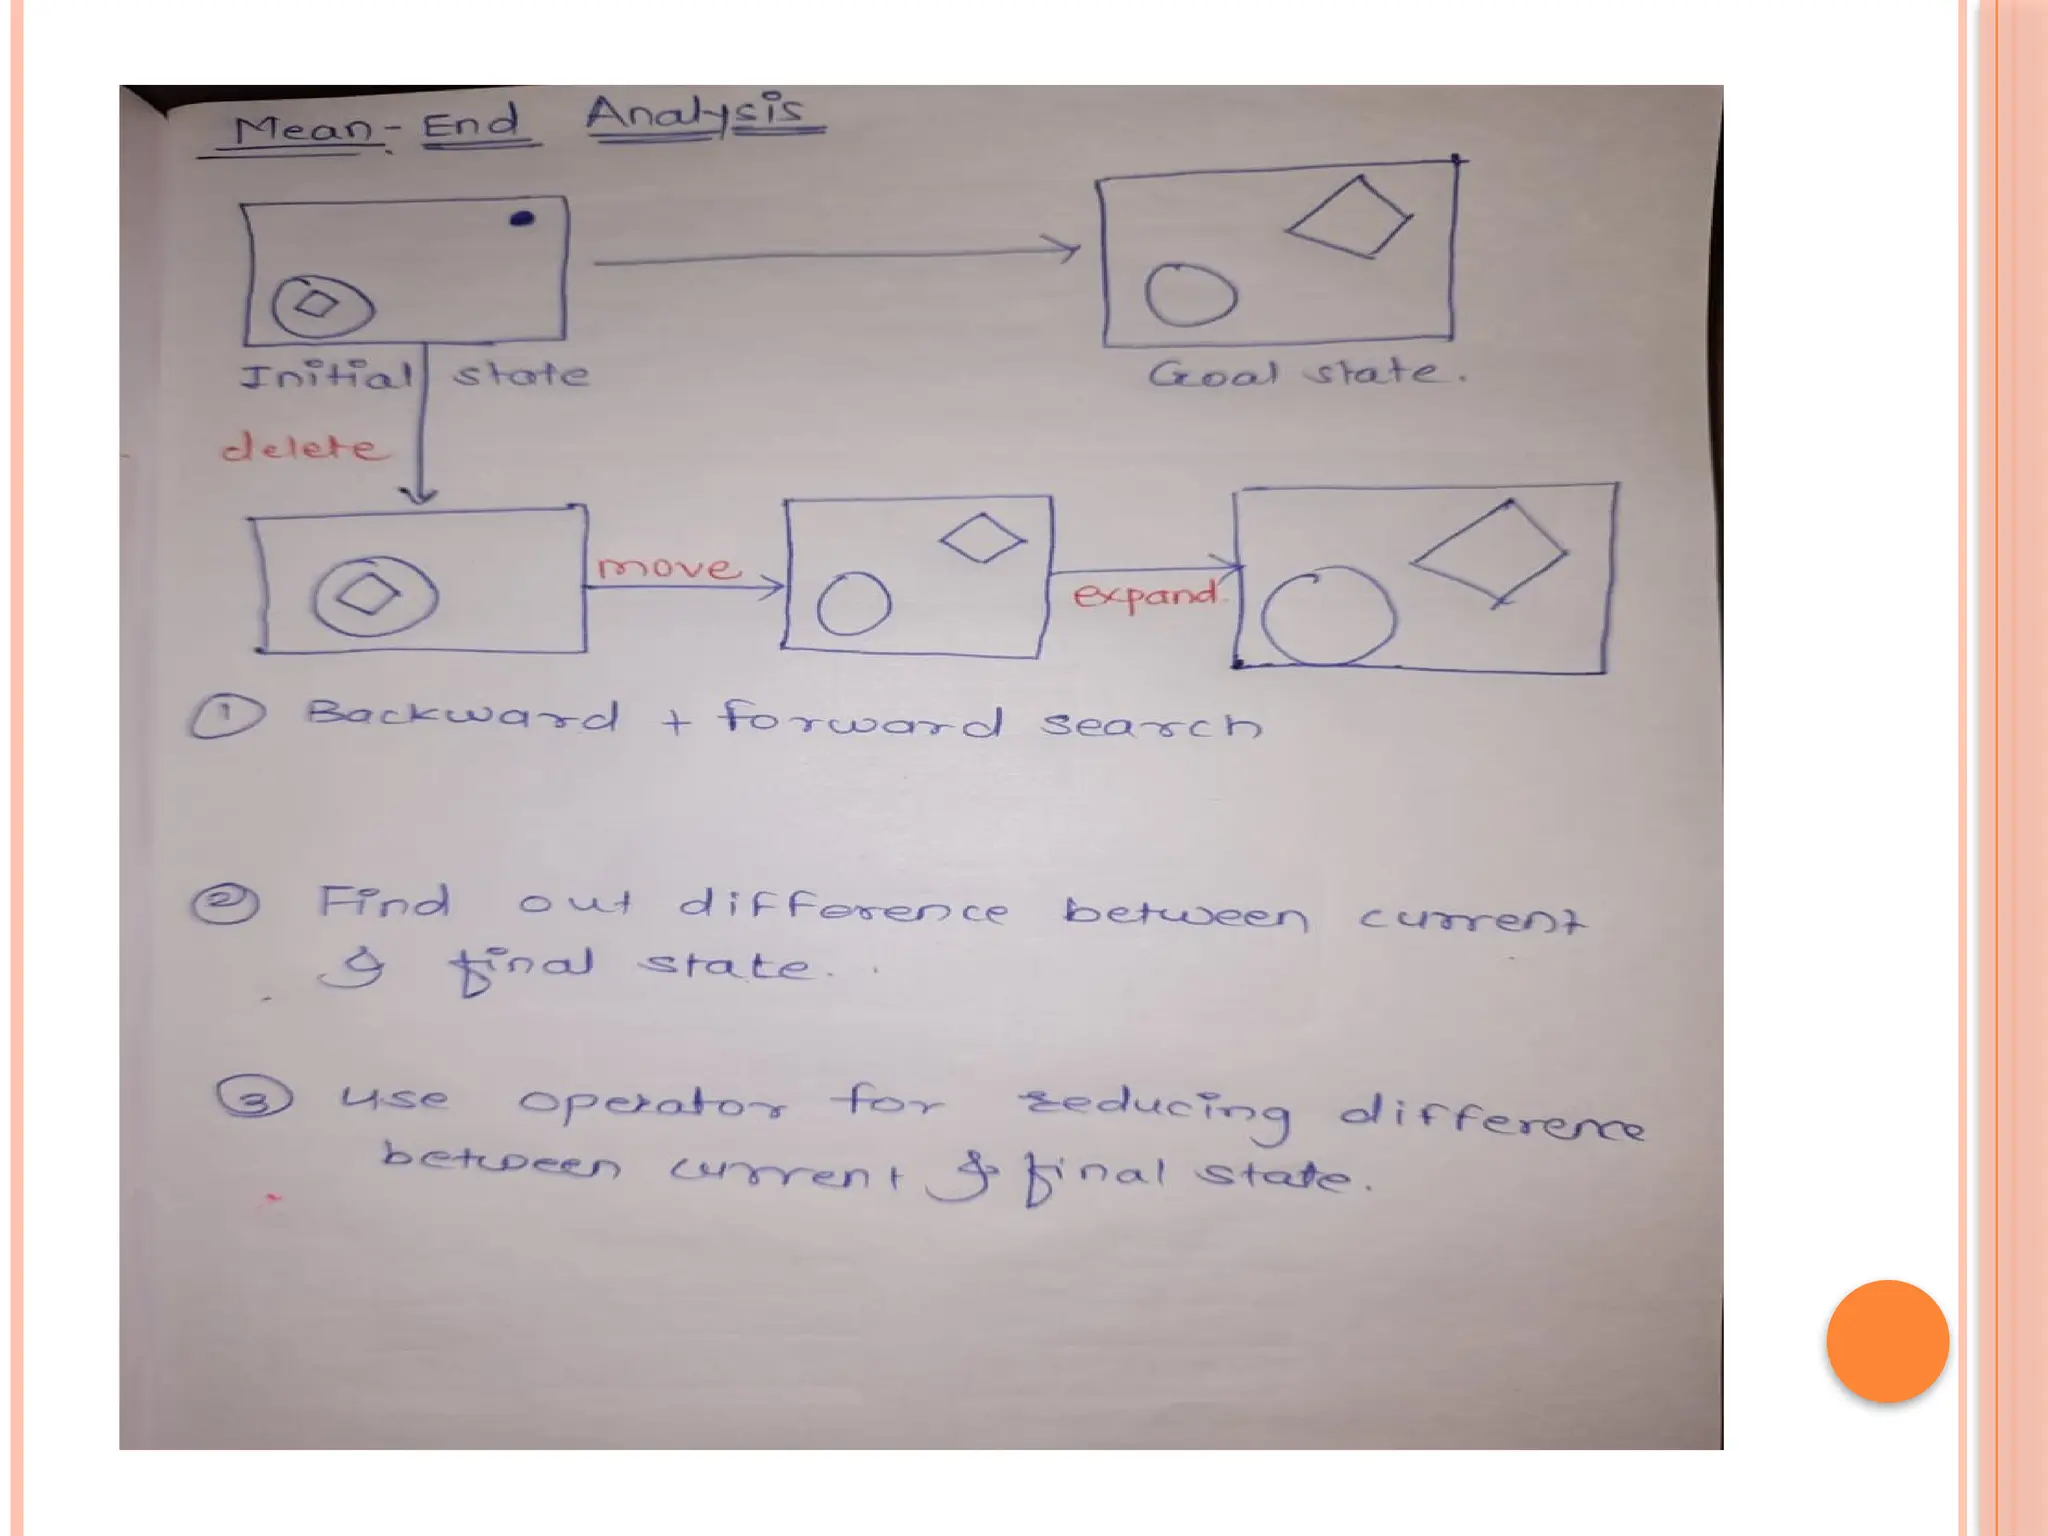 Mean-End Analysis
Initial state
Goal state.
delete
move
expand
① Backward + forward search
② Find out difference between current
& final state.
③ use operator for reducing difference
between current & final state.